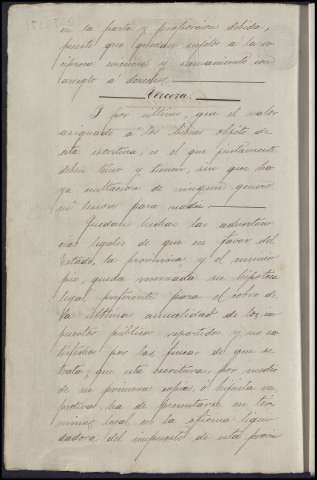 en la parte y proporcion debida,
puesto que quedan sujeto á la re
ciproca eviccion y saneamiento con
arreglo á derecho.
Tercera.
Y por último, que el valor
asignado á las fincas objeto de
esta escritura, es el que justamente
deben tener y tienen, sin que ha
ya ocultacion de ningun genero
ni lesion para nadie.
Quedan hechas las adverten
cias legales de que en favor del
Estado, la provincia y el munici
pio, queda reservada su hipoteca
legal preferente para el cobro de
la última anualidad de los im
puestos públicos repartidos y no sa
tisfechos por las fincas de que se
trata; que esta escritura por medio
de su primera copia ó hijuela res
pectiva, ha de presentarse en tér
mino legal, en la oficina liqui
dadora del impuesto de esta provin